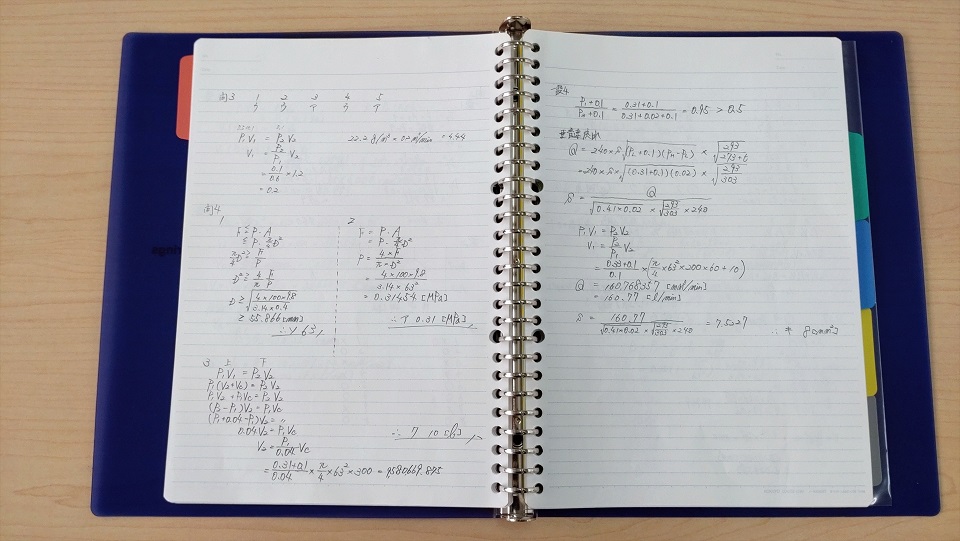 問3 1 2 3 4 5
ウ ウ イ ウ イ
P₁V₁ = P₂V₂
V₁ = P₂/P₁ V₂
= 0.1/0.6 × 1.2
= 0.2
22.2 g/m³ × 0.2 m³/min = 4.44
問4
1
F ≦ P・A
≦ P・π/4 D²
π/4 D² ≧ F/P
D² ≧ 4/π F/P
D ≧ √(4×100×9.8/3.14×0.4)
≧ 55.866 [mm]
63
2
F = P・A
= P・π/4 D²
P = 4×F/π×D²
= 4×100×9.8/3.14×63²
= 0.31454 [MPa]
∴イ 0.31 [MPa]
3 上 下
P₁V₁ = P₂V₂
P₁(V₂+Vc) = P₂V₂
P₁V₂+P₁Vc = P₂V₂
(P₂-P₁)V₂ = P₁Vc
(P₁+0.04-P₁)V₂ = 〃
0.04V₂ = P₁Vc
V₂ = P₁/0.04 Vc
= 0.31+0.1/0.04 × π/4 × 63² × 300 = 9580669.895
10 [L]
設4
P₂+0.1/P_H+0.1 = 0.31+0.1/0.31+0.02+0.1 = 0.95 > 0.5
亜音速流れ
Q = 240×S√(P_L+0.1)(P_H-P_L) × √293/273+t
= 240×S×√(0.31+0.1)(0.02) × √293/303
S = Q/√0.41×0.02 × √293/303 × 240
P₁V₁ = P₂V₂
V₁ = P₂/P₁ V₂
= 0.33+0.1/0.1 × (π/4 × 63² × 200×60÷10)
Q = 160.77 [l/min]
S = 160.77/√0.41×0.02 × √293/303 × 240 = 7.5027
∴ キ 8 [mm²]